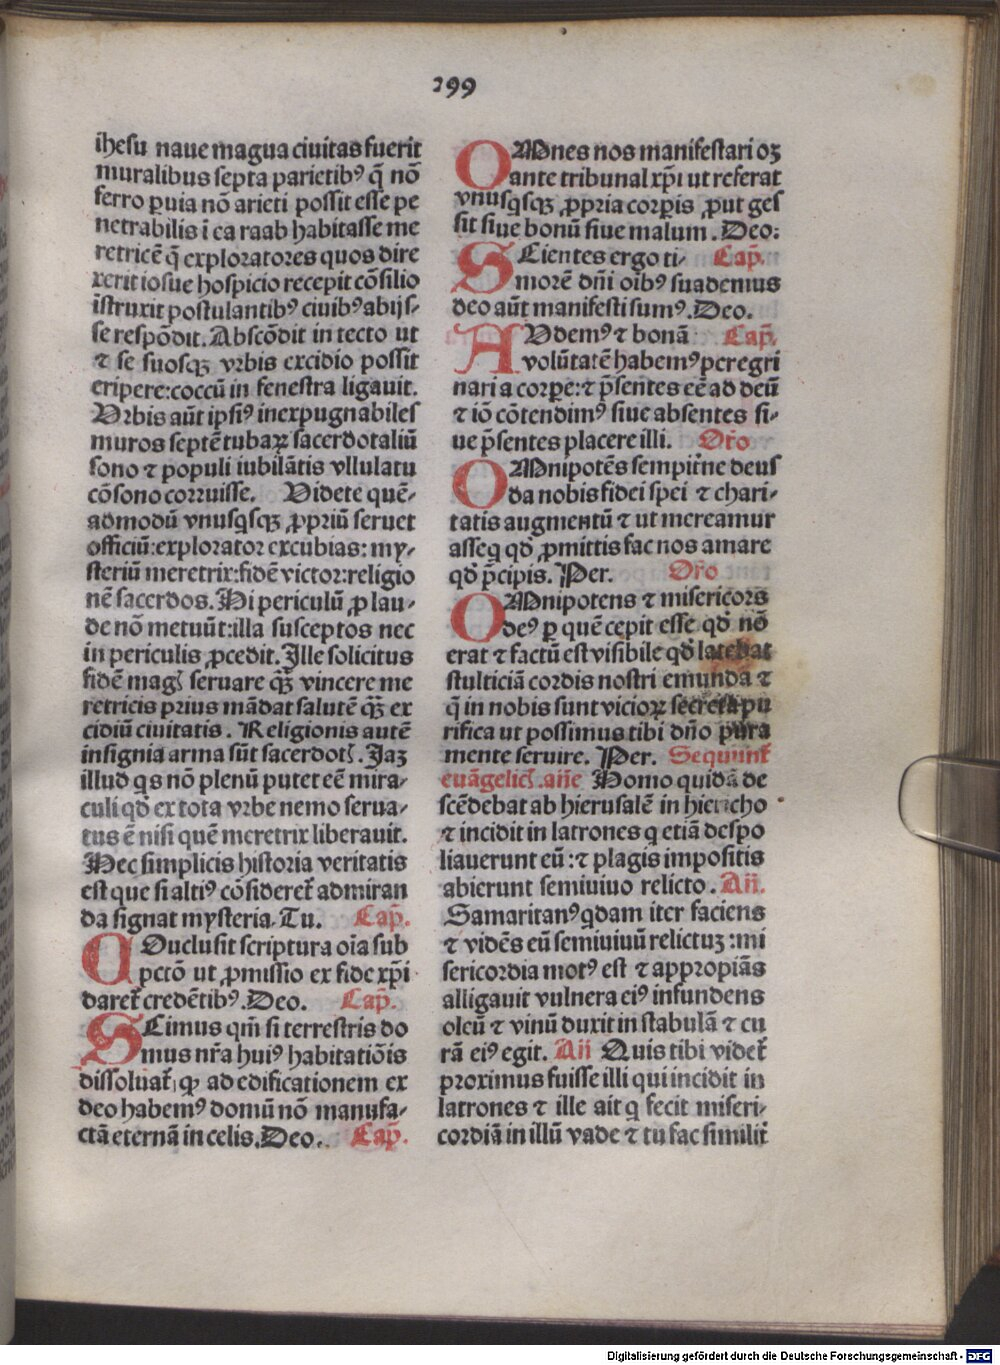 299
ihesu naue magua ciuitas fuerit
muralibus septa parietibꝰ q̄ nō
ferro ꝑuia nō arieti possit esse pe
netrabilis ī ea raab habitasse me
retricē q̄ exploratores quos dire
xerit iosue hospicio recepit cōsilio
īstruxit postulantibꝰ ciuibꝰ abijs-
se respōdit. Abscōdit in tecto ut
⁊ se suosqꝫ vrbis excidio possit
eripere: coccū in fenestra ligauit.
Vrbis aūt ipsiꝰ inexpugnabiles
muros septē tubaꝝ sacerdotaliū
sono ⁊ populi iubilātis vllulatu
cōsono corruisse. Videte quē-
admodū vnusqsqꝫ ꝓpriū seruet
officiū: explorator excubias: my-
steriū meretrix: fidē victor: religio
nē sacerdos. Hi periculū ꝓ lau-
de nō metuūt: illa susceptos nec
in periculis ꝓcedit. Ille solicitus
fidē magꝭ seruare qꝫ̄ vincere me
retricis prius mādat salutē qꝫ̄ ex
cidiū ciuitatis. Religionis autē
insignia arma sūt sacerdotꝭ. Jaꝫ
illud qs nō plenū putet eē mira-
culi qđ ex tota vrbe nemo serua-
tus ē nisi quē meretrix liberauit.
Hec simplicis historia veritatis
est que si altiꝰ cōsideret᷑ admiran
da signat mysteria. Tu. Cap̄.
COuclusit scriptura oīa sub
pctō ut ꝓmissio ex fide xp̄i
daret᷑ credētibꝰ. Deo. Cap̄.
SCimus qm̄ si terrestris do
mus nr̄a huiꝰ habitatiōis
dissoluat᷑ ꝙ ad edificationem ex
deo habemꝰ domū nō manufa-
ctā eternā in celis. Deo. Cap̄.
OMnes nos manifestari oꝫ
ante tribunal xp̄i ut referat
vnusqsqꝫ ꝓpria corꝑis ꝓut ges
sit siue bonū siue malum. Deo:
SCientes ergo ti- Cap̄.
morē dn̄i oībꝰ suademus
deo aūt manifesti sumꝰ. Deo.
AVdemꝰ ⁊ bonā Cap̄.
volūtatē habemꝰ peregri
nari a corꝑe: ⁊ p̄sentes eē ad deū
⁊ iō cōtendimꝰ siue absentes si-
ue p̄sentes placere illi. Or̄o
OMnipotēs sempit᷑ne deus
da nobis fidei spei ⁊ chari-
tatis augmentū ⁊ ut mereamur
asseq qđ ꝓmittis fac nos amare
qđ p̄cipis. Per. Or̄o
OMnipotens ⁊ misericors
deꝰ ꝑ quē cepit esse qđ nō
erat ⁊ factū est visibile qđ latebat
stulticiā cordis nostri emunda ⁊
q̄ in nobis sunt vicioꝝ secreta pu
rifica ut possimus tibi dn̄o pura
mente seruire. Per. Sequūnt᷑
euāgelicꝭ. ane Homo quidā de
scēdebat ab hierusalē in hiericho
⁊ incidit in latrones q etiā despo
liauerunt eū: ⁊ plagis impositis
abierunt semiuiuo relicto. Aīī.
Samaritanꝰ qdam iter faciens
⁊ vidēs eū semiuiuū relictuꝫ: mi
sericordia motꝰ est ⁊ appropiās
alligauit vulnera eiꝰ infundens
oleū ⁊ vinū duxit in stabulā ⁊ cu
rā eiꝰ egit. Aīī Quis tibi videt᷑
proximus fuisse illi qui incidit in
latrones ⁊ ille ait q fecit miseri-
cordiā in illū vade ⁊ tu fac similit᷑
Digitalisierung gefördert durch die Deutsche Forschungsgemeinschaft - DFG